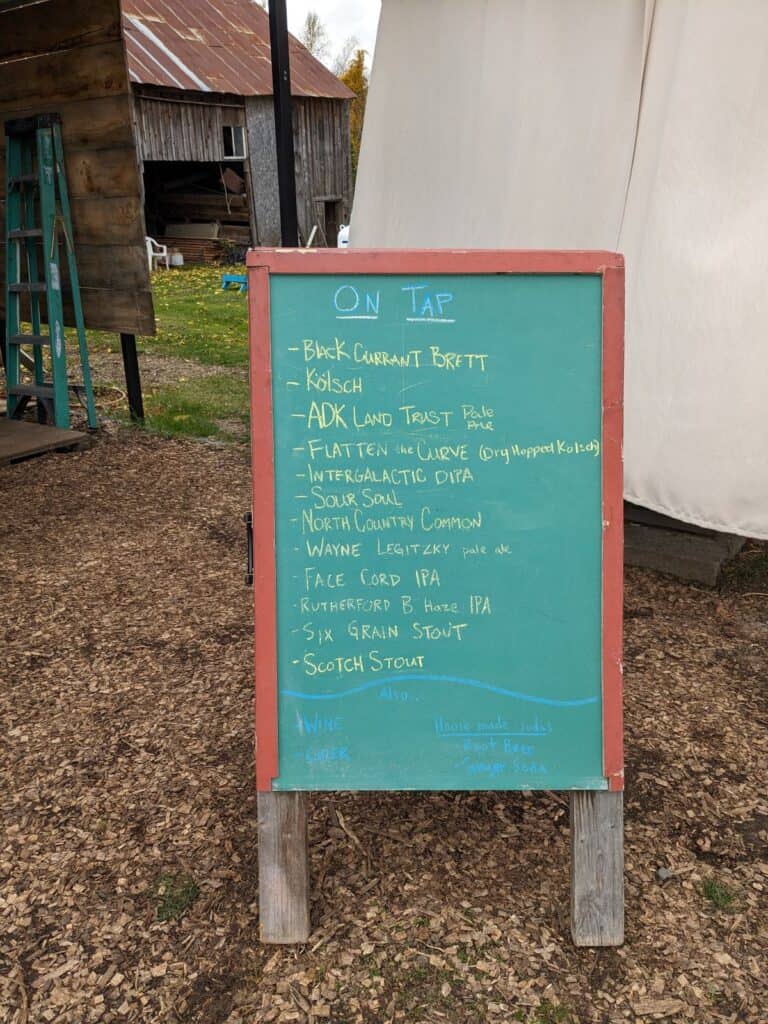 ON TAP
- BLACK CURRANT BRETT
- KÖLSCH
- ADK LAND TRUST Pale Ale
- FLATTEN the CURVE (Dry Hopped Kolsch)
- INTERGALACTIC DIPA
- SOUR SOUL
- NORTH COUNTRY COMMON
- WAYNE LEGITZKY pale ale
- FACE CORD IPA
- RUTHERFORD B. Haze IPA
- SIX GRAIN STOUT
- SCOTCH STOUT
Also...
- WINE
- CIDER
House made sodas
- Root Beer
- Ginger Soda